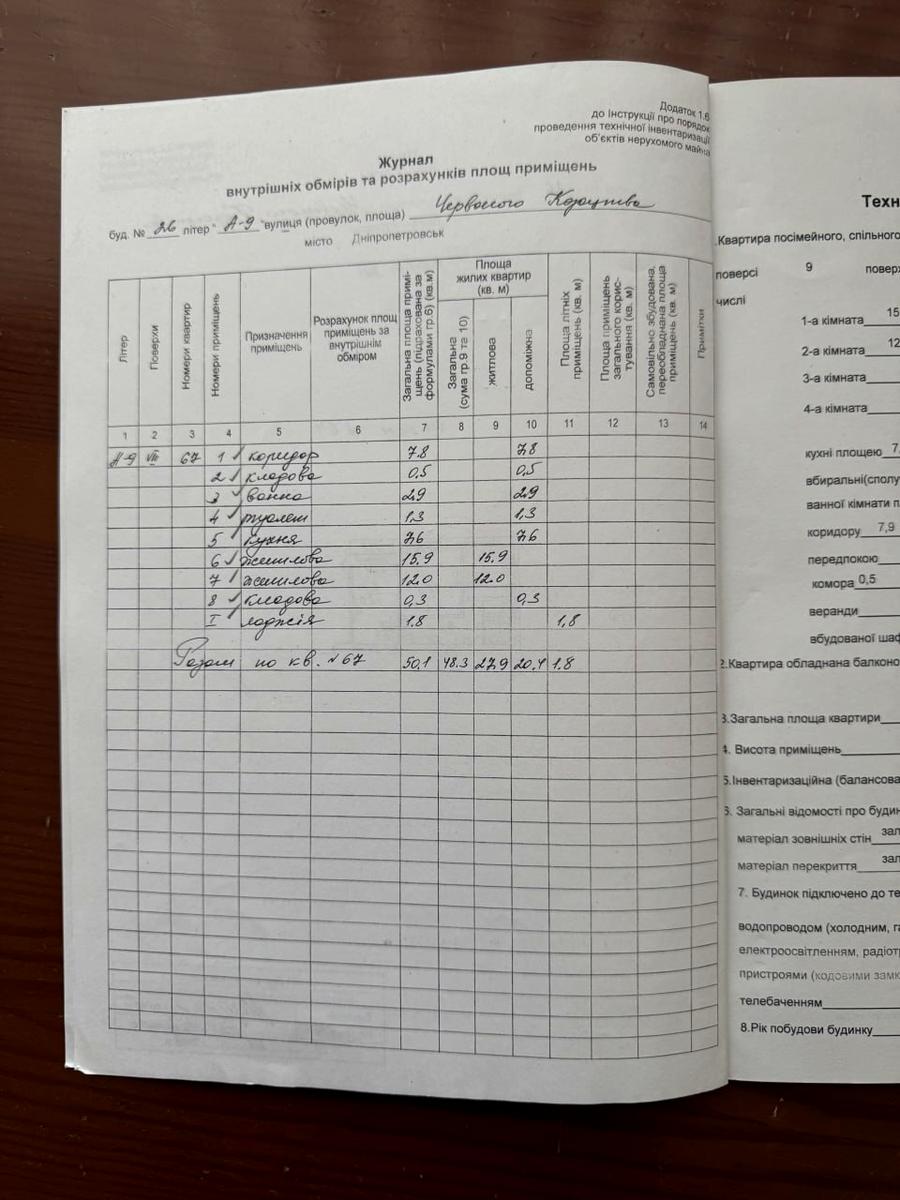 Додаток 1.6
до Інструкції про порядок
проведення технічної інвентаризації
об'єктів нерухомого майна
Журнал
внутрішніх обмірів та розрахунків площ приміщень
буд. № 26 літер " А-9 "вулиця (провулок, площа) Червоного Козацтва
місто Дніпропетровськ
Літер Поверхи Номери квартир Номери приміщень Призначення приміщень Розрахунок площ приміщень за внутрішнім обміром Загальна площа приміщень (підрахована за формулами гр.6) (кв.м) Площа жилих квартир (кв. м) Загальна (сума гр.9 та 10) житлова допоміжна Площа літніх приміщень (кв. м) Площа приміщень загального користування (кв. м) Самовільно збудована, переобладнана площа приміщень (кв. м) Примітки
1 2 3 4 5 6 7 8 9 10 11 12 13 14
А-9 VIII 67 1 коридор 7.8 7.8
2 кладова 0,5 0,5
3 ванна 2,9 2,9
4 туалет 1,3 1,3
5 кухня 7,6 7,6
6 житлова 15.9 15.9
7 житлова 12.0 12.0
8 кладова 0,3 0,3
I лоджія 1.8 1,8
Разом по кв. №67 50.1 48.3 27,9 20.4 1.8
Техн
.Квартира посімейного, спільного
поверсі 9 поверх
числі
1-а кімната 15
2-а кімната 12
3-а кімната
4-а кімната
кухні площею 7,
вбиральні(сполу
ванної кімнати п
коридору 7,9
передпокою
комора 0,5
веранди
вбудованої шаф
2.Квартира обладнана балконо
3.Загальна площа квартири
4. Висота приміщень
5.Інвентаризаційна (балансова
6. Загальні відомості про будин
матеріал зовнішніх стін зал
матеріал перекриття зал
7. Будинок підключено до те
водопроводом (холодним, га
електроосвітленням, радіотр
пристроями (кодовими замк
телебаченням
8.Рік побудови будинку